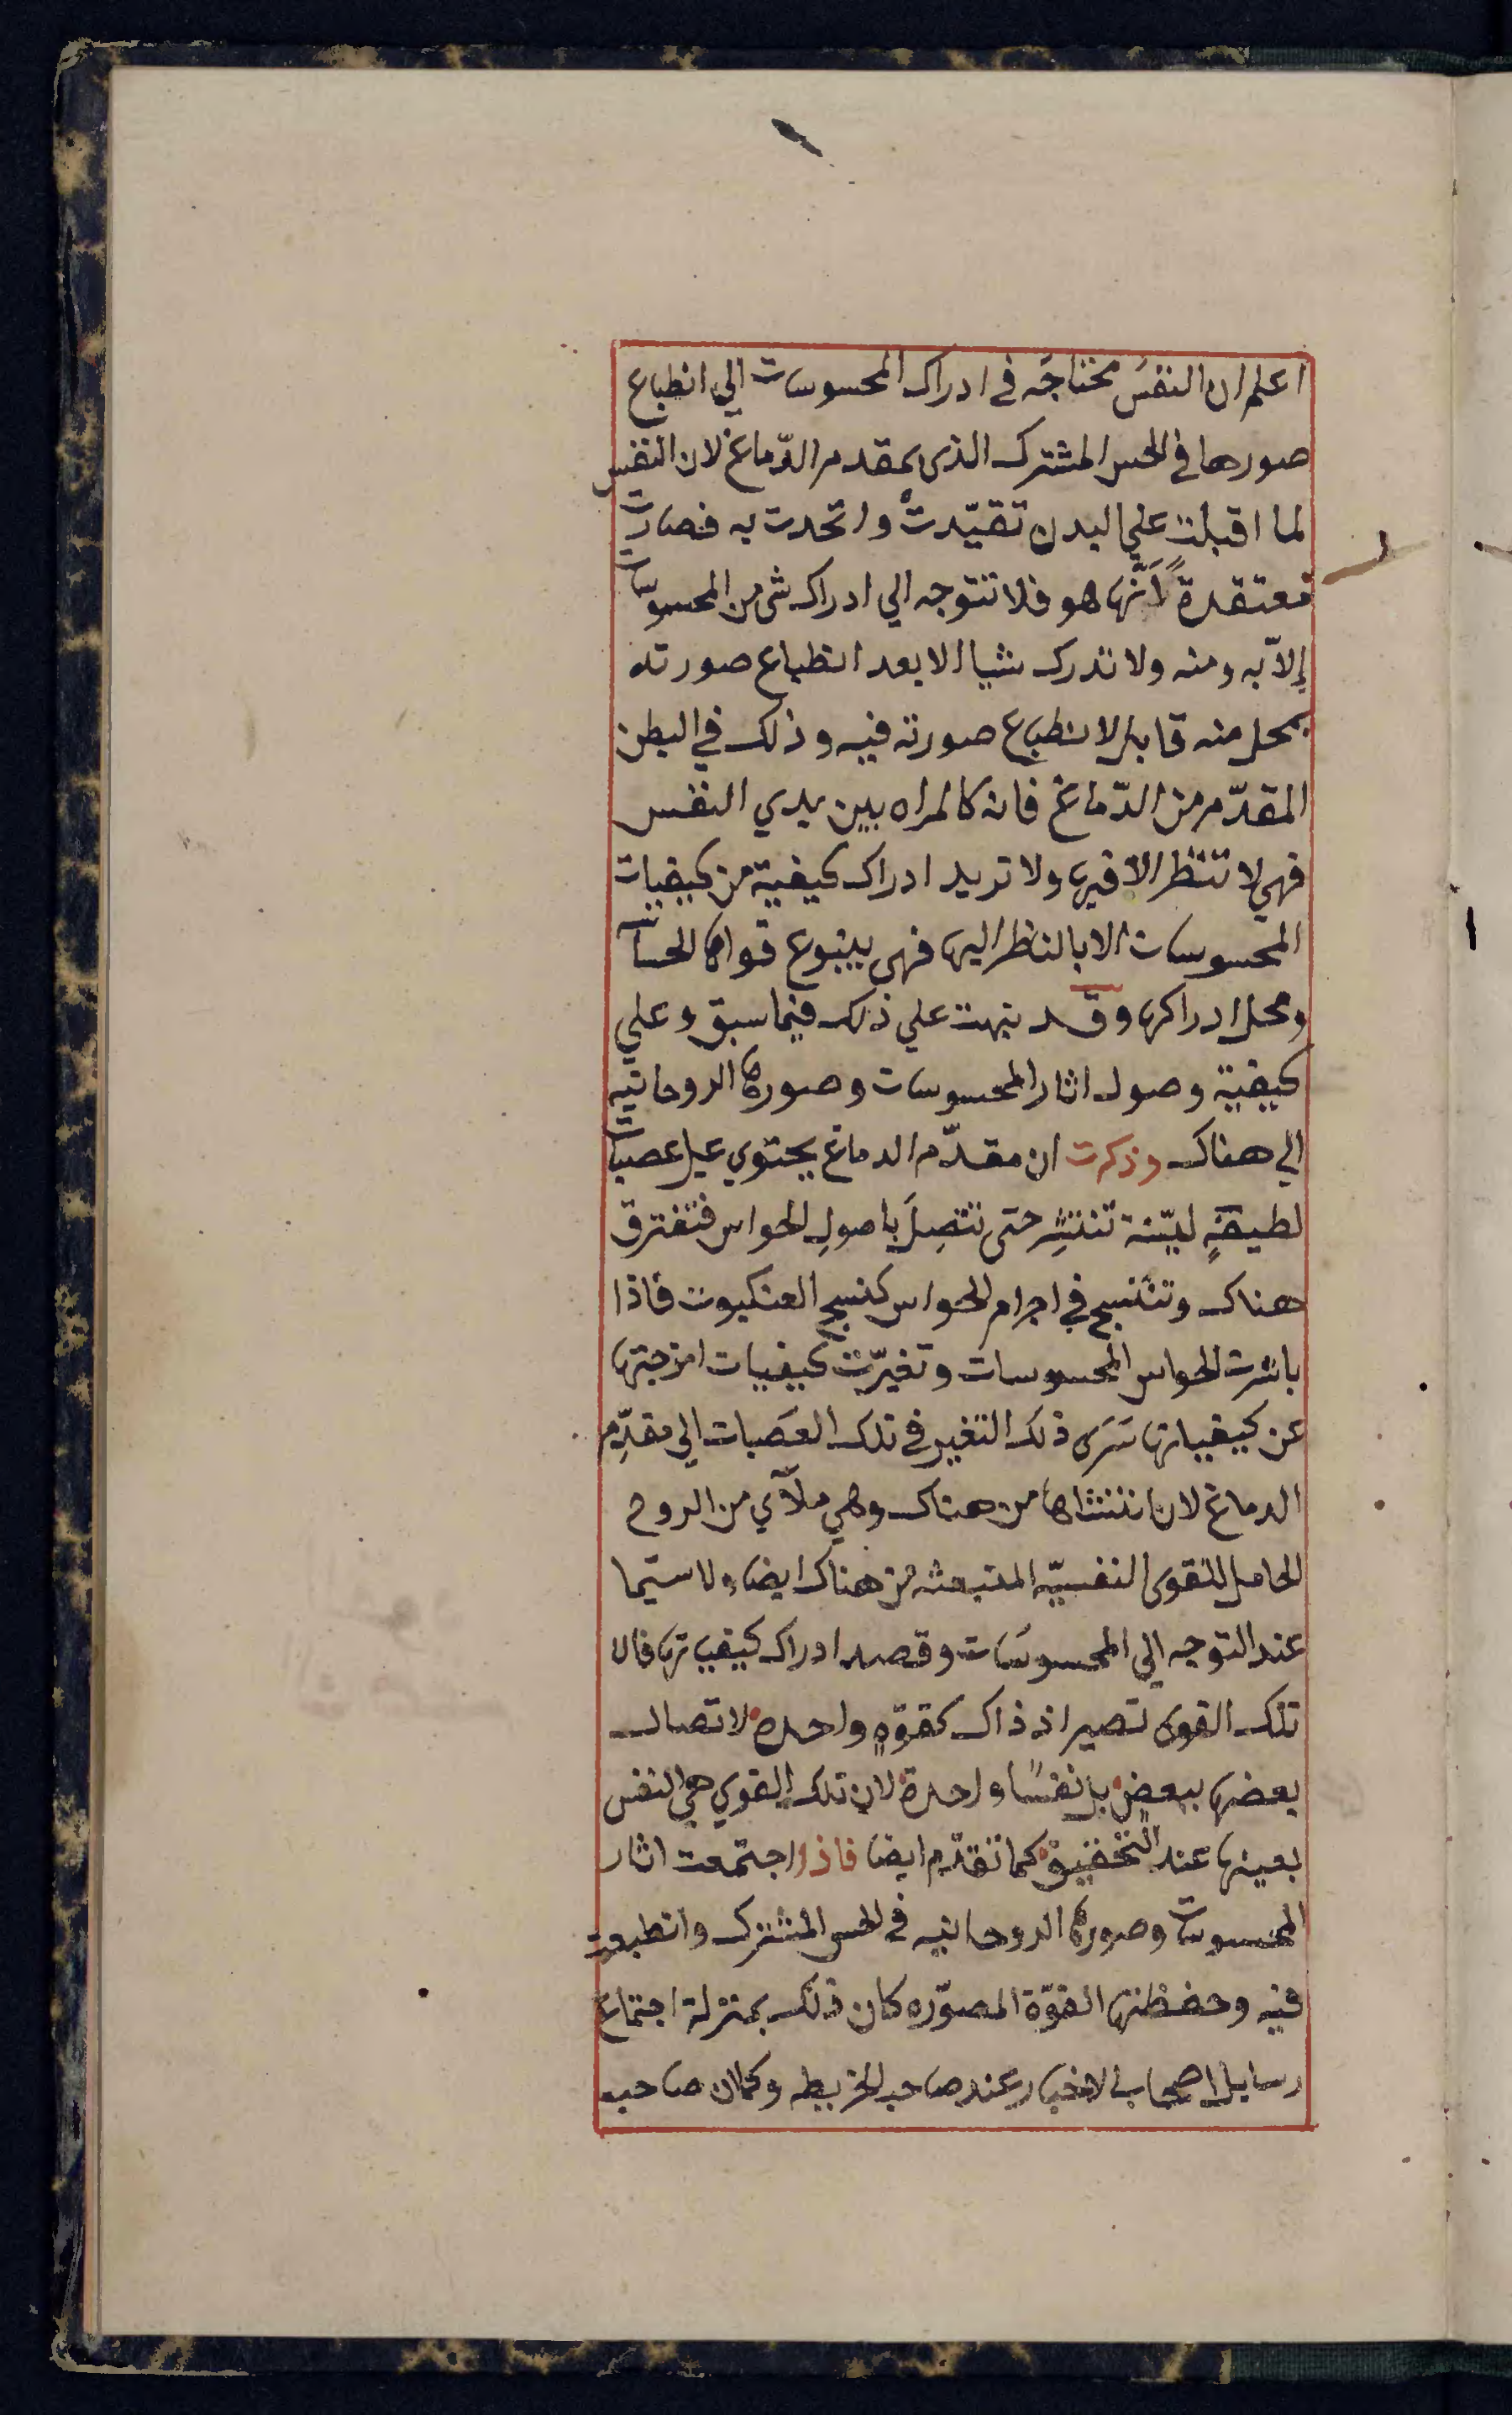 اعلم ان النفسَ محتاجَه في ادراك المحسوسات الي انطباع
صورها في الحس المشترك الذى بمقدم الدّماغ لان النفس
لما اقبلت علي البدن تقيّدتْ واتحدت به فصارت
معتقدةً اَنَّها هو فلا تتوجه الي ادراك شى من المحسوسات
إلاّ به ومنه ولا تدرك شيا الا بعد انطباع صورته
بمحل منه قابل لانطباع صورته فيه وذلك في البطن
المقدّم من الدّماغ فانه كالمراه بين يدي النفس
فهي لا تنتظر الا فيها ولا تريد ادراك كيفية من كيفيات
المحسوسات الا بالنظر اليها فهى ينبوع قواها الحساسة
ومحل ادراكها وقد نبهت علي ذلك فيما سبق وعلي
كيفية وصول اثار المحسوسات وصورها الروحانيه
الي هناك وذكرت ان مقدّم الدماغ يحتوي علي عصبات
لطيفةٍ ليّنة تنتشِر حتى تتصِلَ باصولِ الحواس فتفترق
هناك وتنتسج في اجرام الحواس كنسج العنكبوت فاذا
باشرت الحواس المحسوسات وتغيّرت كيفيات امزجتها
عن كيفياتها سَرَى ذلك التغير في تلك العَصَبات الي مقدِّم
الدماغ لان منتشاها من هناك وهي ملآي من الروح
الحامل للقوى النفسيّه المنبعثه من هناك ايضا ولا سيّما
عند التوجه الي المحسوسَات وقصد ادراك كيفياتها فان
تلك القوى تصير اذ ذاك كقوّهٍ واحدة لاتصال
بعضها ببعضٍ بل نفسًا واحدة لان تلك القوي هي النفس
بعينها عند التحقيق كما تقدّم ايضا فاذا اجتمعت اثار
المحسوسات وصورها الروحانيه في الحس المشترك وانطبعت
فيه وحفظتها القوّة المصوّره كان ذلك بمنزلة اجتماع
رسايل اصحاب الاخبار عند صاحب الخريطه وكمان صاحب